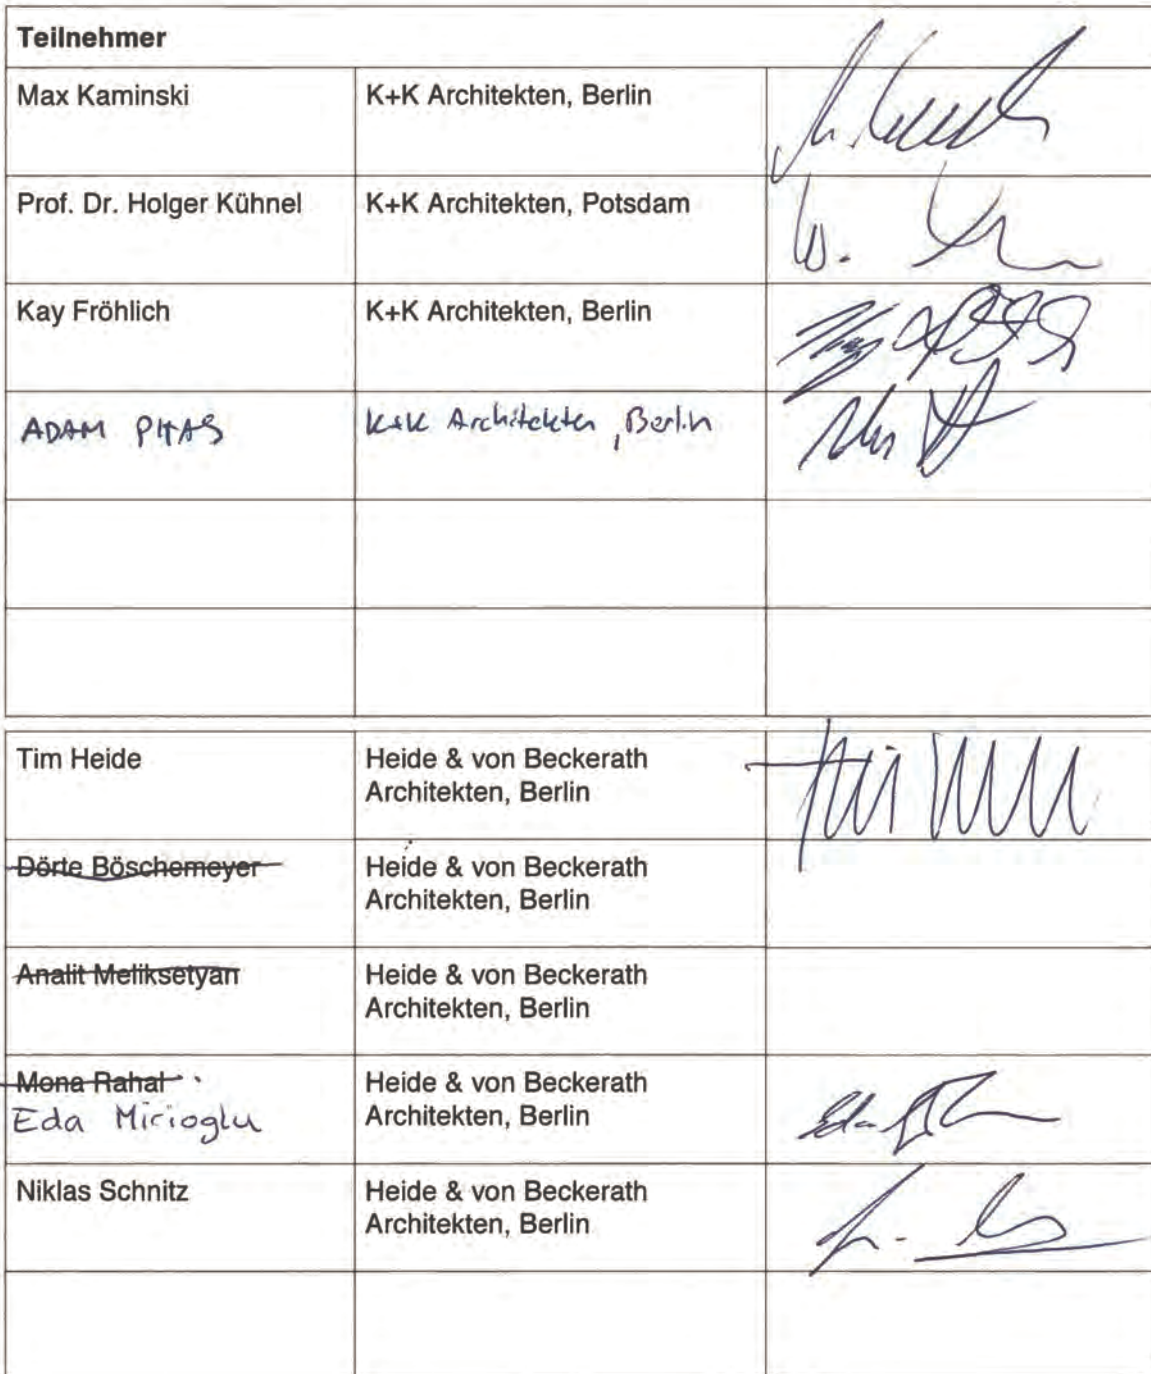 Teilnehmer
Max Kaminski K+K Architekten, Berlin
Prof. Dr. Holger Kühnel K+K Architekten, Potsdam
Kay Fröhlich K+K Architekten, Berlin
ADAM K+K Architekten, Berlin
Tim Heide Heide & von Beckerath
Architekten, Berlin
Dörte Böschemeyer Heide & von Beckerath
Architekten, Berlin
Analit Meliksetyan Heide & von Beckerath
Architekten, Berlin
Mona Rahal Heide & von Beckerath
Eda Mirioglu Architekten, Berlin
Niklas Schnitz Heide & von Beckerath
Architekten, Berlin